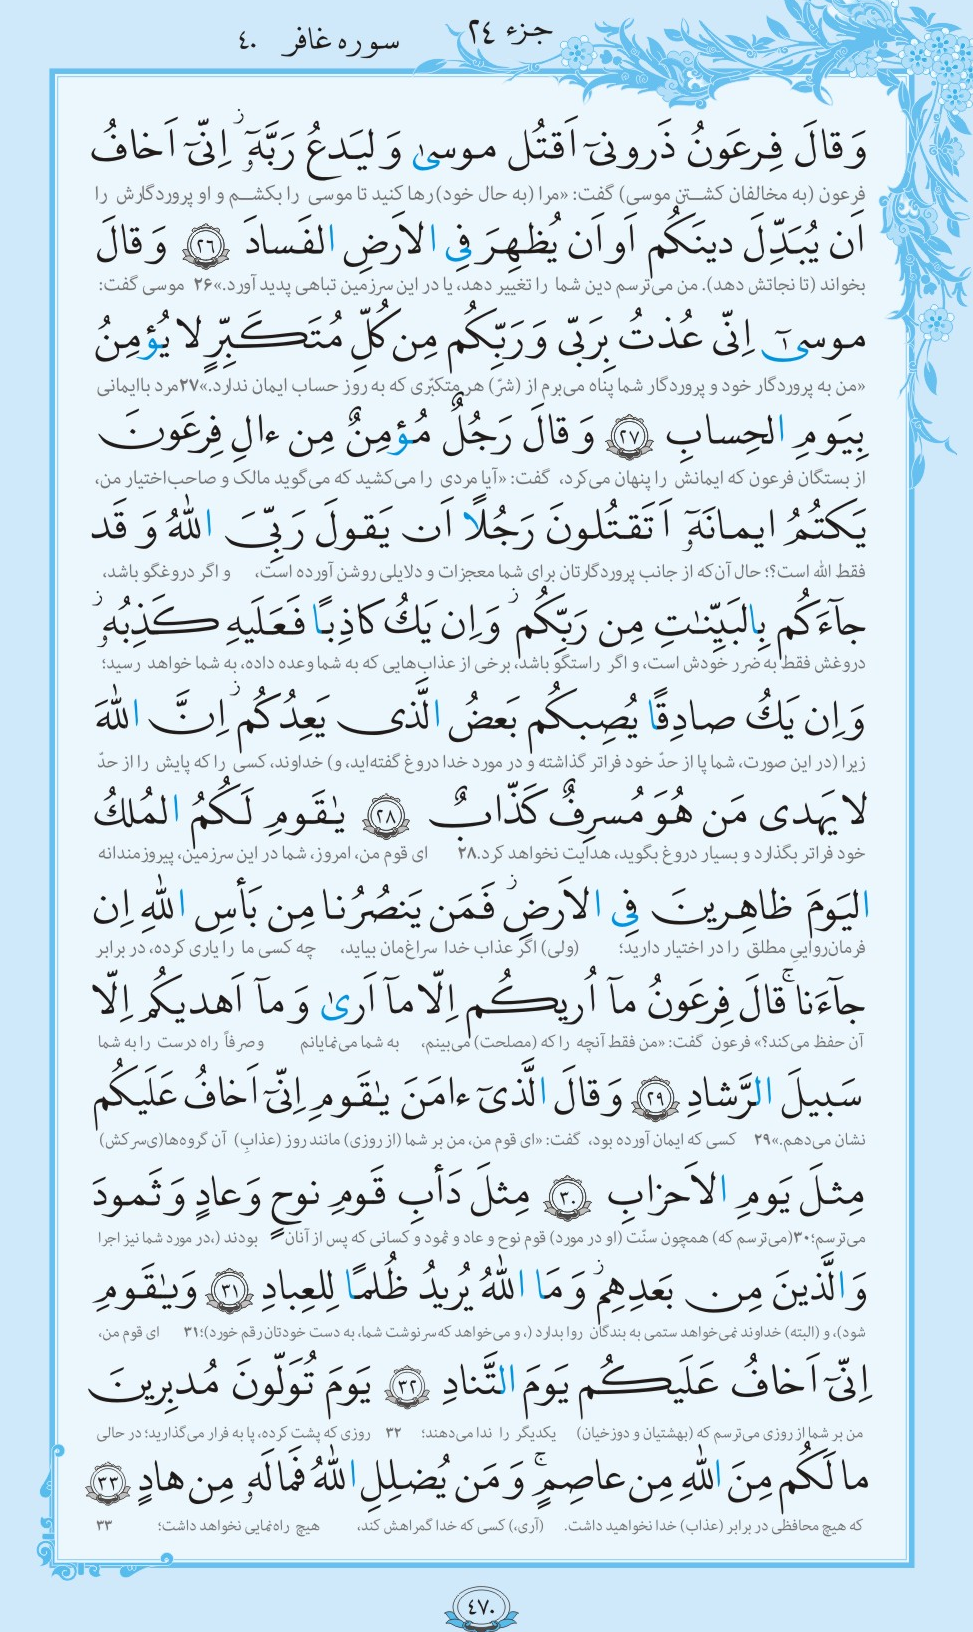 جزء ٢٤
سوره غافر ٤٠
وَ قالَ فِرعَونُ ذَرونیٓ اَقتُل موسیٰ وَ لیَدعُ رَبَّهٓۥۖ اِنّیٓ اَخافُ
فرعون (به مخالفان کشتن موسی) گفت: «مرا (به حال خود) رها کنید تا موسی را بکشم و او پروردگارش را
اَن یُبَدِّلَ دینَکُم اَو اَن یُظهِرَ فِی الاَرضِ الفَسادَ ٢٦ وَ قالَ
بخواند (تا نجاتش دهد). من می‌ترسم دین شما را تغییر دهد، یا در این سرزمین تباهی پدید آورد.»۲۶ موسی گفت:
موسیٰٓ اِنّی عُذتُ بِرَبّی وَ رَبِّکُم مِن کُلِّ مُتَکَبِّرٍ لا یُؤمِنُ
«من به پروردگار خود و پروردگار شما پناه می‌برم از (شرّ) هر متکبّری که به روز حساب ایمان ندارد.»۲۷مرد باایمانی
بِیَومِ الحِسابِ ٢٧ وَ قالَ رَجُلٌ مُؤمِنٌ مِن ءالِ فِرعَونَ
از بستگان فرعون که ایمانش را پنهان می‌کرد، گفت: «آیا مردی را می‌کشید که می‌گوید مالک و صاحب‌اختیار من،
یَکتُمُ ایمانَهٓۥ اَتَقتُلونَ رَجُلًا اَن یَقولَ رَبِّیَ اللّٰهُ وَ قَد
فقط الله است؟؛ حال آن‌که از جانب پروردگارتان برای شما معجزات و دلایلی روشن آورده است، و اگر دروغگو باشد،
جآءَکُم بِالبَیِّنٰتِ مِن رَبِّکُمۖ وَ اِن یَکُ کاذِبًا فَعَلَیهِ کَذِبُهۥۖ
دروغش فقط به ضرر خودش است، و اگر راستگو باشد، برخی از عذاب‌هایی که به شما وعده داده، به شما خواهد رسید؛
وَ اِن یَکُ صادِقًا یُصِبکُم بَعضُ الَّذی یَعِدُکُمۖ اِنَّ اللّٰهَ
زیرا (در این صورت، شما پا از حدّ خود فراتر گذاشته و در مورد خدا دروغ گفته‌اید، و) خداوند، کسی را که پایش را از حدّ
لا یَهدی مَن هُوَ مُسرِفٌ کَذّابٌ ٢٨ یٰقَومِ لَکُمُ المُلکُ
خود فراتر بگذارد و بسیار دروغ بگوید، هدایت نخواهد کرد.۲۸ ای قوم من، امروز، شما در این سرزمین، پیروزمندانه
الیَومَ ظاهِرینَ فِی الاَرضِۖ فَمَن یَنصُرُنا مِن بَأسِ اللّٰهِ اِن
فرمان‌رواییِ مطلق را در اختیار دارید؛ (ولی) اگر عذاب خدا سراغ‌مان بیاید، چه کسی ما را یاری کرده، در برابر
جآءَناۚ قالَ فِرعَونُ مآ اُریکُم اِلّا مآ اَریٰ وَ مآ اَهدیکُم اِلّا
آن حفظ می‌کند؟» فرعون گفت: «من فقط آنچه را که (مصلحت) می‌بینم، به شما می‌نمایانم وصرفاً راه درست را به شما
سَبیلَ الرَّشادِ ٢٩ وَ قالَ الَّذیٓ ءامَنَ یٰقَومِ اِنّیٓ اَخافُ عَلَیکُم
نشان می‌دهم.»۲۹ کسی که ایمان آورده بود، گفت: «ای قوم من، من بر شما (از روزی) مانند روز (عذابِ) آن گروه‌ها(ی‌سرکش)
مِثلَ یَومِ الاَحزابِ ٣٠ مِثلَ دَأبِ قَومِ نوحٍ وَ عادٍ وَ ثَمودَ
می‌ترسم؛۳۰(می‌ترسم که) همچون سنّت (او در مورد) قوم نوح و عاد و ثمود و کسانی که پس از آنان بودند (،در مورد شما نیز اجرا
وَ الَّذینَ مِن بَعدِهِمۖ وَ مَا اللّٰهُ یُریدُ ظُلمًا لِلعِبادِ ٣١ وَ یٰقَومِ
شود)، و (البته) خداوند نمی‌خواهد ستمی به بندگان روا بدارد (، و می‌خواهد که سرنوشت شما، به دست خودتان رقم خورد)؛۳۱ ای قوم من،
اِنّیٓ اَخافُ عَلَیکُم یَومَ التَّنادِ ٣٢ یَومَ تُوَلّونَ مُدبِرینَ
من بر شما از روزی می‌ترسم که (بهشتیان و دوزخیان) یکدیگر را ندا می‌دهند؛ ۳۲ روزی که پشت کرده، پا به فرار می‌گذارید؛ در حالی
ما لَکُم مِنَ اللّٰهِ مِن عاصِمٍۚ وَ مَن یُضلِلِ اللّٰهُ فَما لَهۥ مِن هادٍ ٣٣
که هیچ محافظی در برابر (عذاب) خدا نخواهید داشت. (آری،) کسی که خدا گمراهش کند، هیچ راه‌نمایی نخواهد داشت؛ ۳۳
٤٧٠